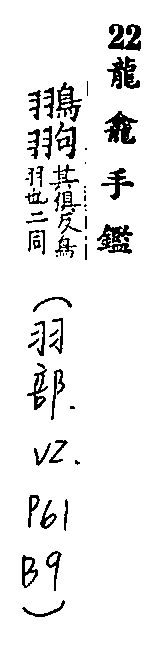 22龍龕手鑑
翑其俱反鳥
羽也二同
(羽部.V2.P61B9)